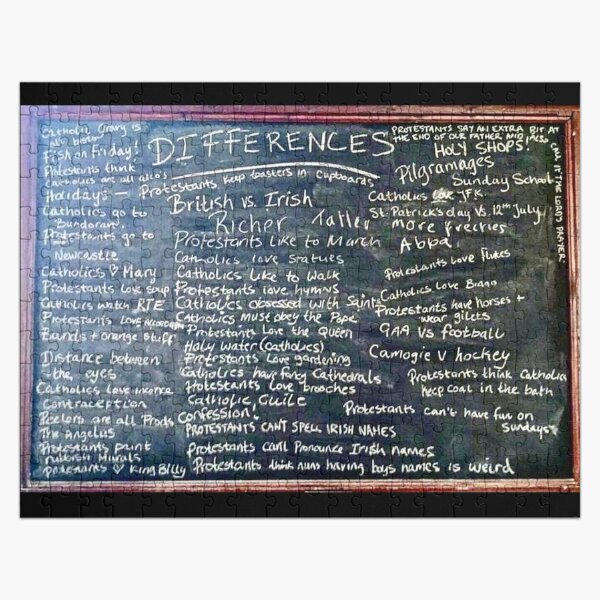 DIFFERENCES
Catholic Gravy is
no bisto!
Fish on Friday!
Protestants think
Catholics are all alco's
Holidays —
Catholics go to
'Bundoran'.
Protestants go to
Newcastle
Catholics ♡ Mary
Protestants love soup
Catholics watch RTE
Protestants love
Bands + orange stuff
Distance between
the eyes
Catholics love incence
Contraception
Peelers are all Prods
The Angelus
Protestants paint
Protestants ♡ King Billy
Protestants keep toasters in cupboards
British vs. Irish
Richer Taller
Protestants Like to March
Catholics love statues
Catholics like to walk
Protestants love hymns
Catholics obsessed with saints
Catholics must obey the Pope
Protestants Love the Queen
Holy water (catholics)
Protestants love gardening
Catholics have fancy Cathedrals
Protestants love brooches
Catholic Guile
Confession!
PROTESTANTS CANT SPELL IRISH NAMES
Protestants can't Pronounce Irish names
Protestants think nuns having boys names is weird
PROTESTANTS SAY AN EXTRA BIT AT
THE END OF OUR FATHER AND ALSO
CALL IT "THE LORDS PRAYER."
HOLY SHOPS!
Pilgramages
Sunday School
Catholics love JFK.
St. Patrick's day VS. 12th July
more freebies
Abba
Protestants love flutes
Catholics Love
Protestants have horses +
wear gilets
GAA VS football
Camogie V hockey
Protestants think Catholics
keep coal in the bath
Protestants can't have fun on
Sundays